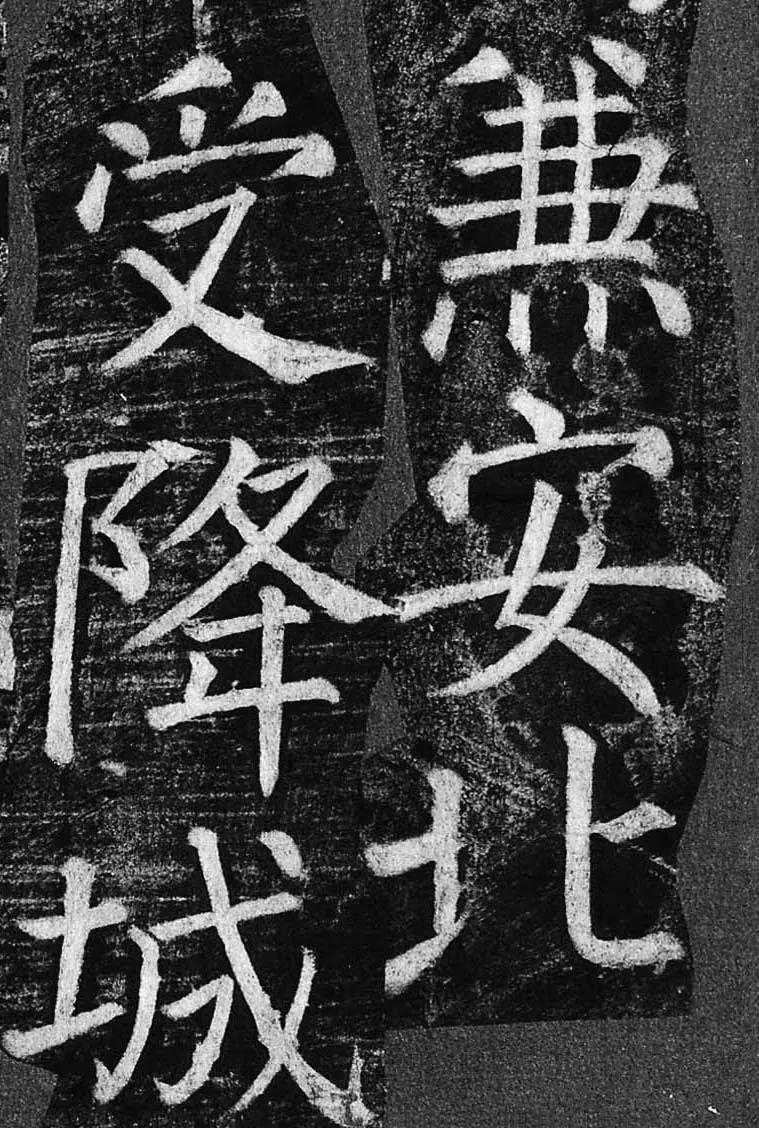 兼安北
受降城